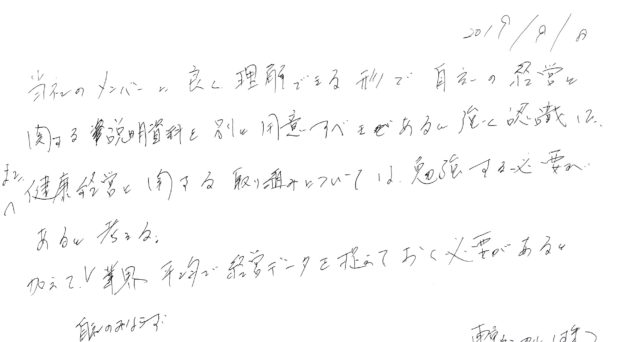 2019/9/8
当社のメンバーに良く理解できる形で自社の経営に
関する説明資料を別に用意すべきであると強く認識した。
また、健康経営に関する取り組みについては、勉強する必要が
あると考える。
加えて、業界平均で経営データを捉えておく必要があると
自社のみならず